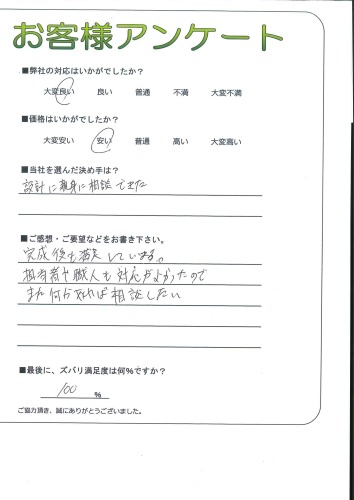 お客様アンケート
■弊社の対応はいかがでしたか？
大変良い 良い 普通 不満 大変不満
■価格はいかがでしたか？
大変安い 安い 普通 高い 大変高い
■当社を選んだ決め手は？
設計に親身に相談できた
■ご感想・ご要望などをお書き下さい。
完成後も満足しています。
担当者や職人も対応がよかったので
また何かあれば相談したい
■最後に、ズバリ満足度は何%ですか？
100 %
ご協力頂き、誠にありがとうございました。